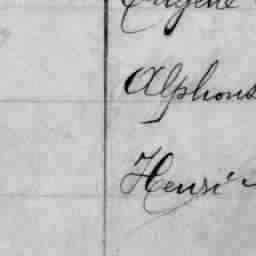 Eugène
Alphons
Henri